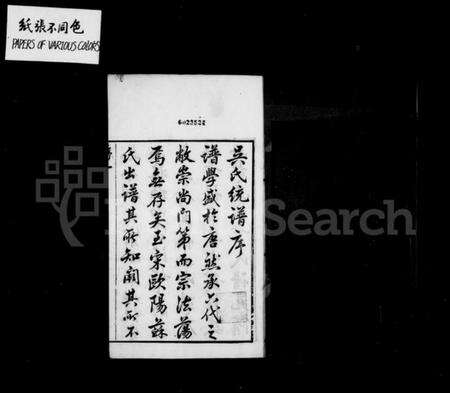 紙張不同色
PAPERS OF VARIOUS COLORS
6023522
吳氏統譜序
譜學盛於唐然承六代之
敝崇尚門第而宗法蕩
焉無存矣至宋歐陽蘇
氏出譜其所知闕其所不
Search